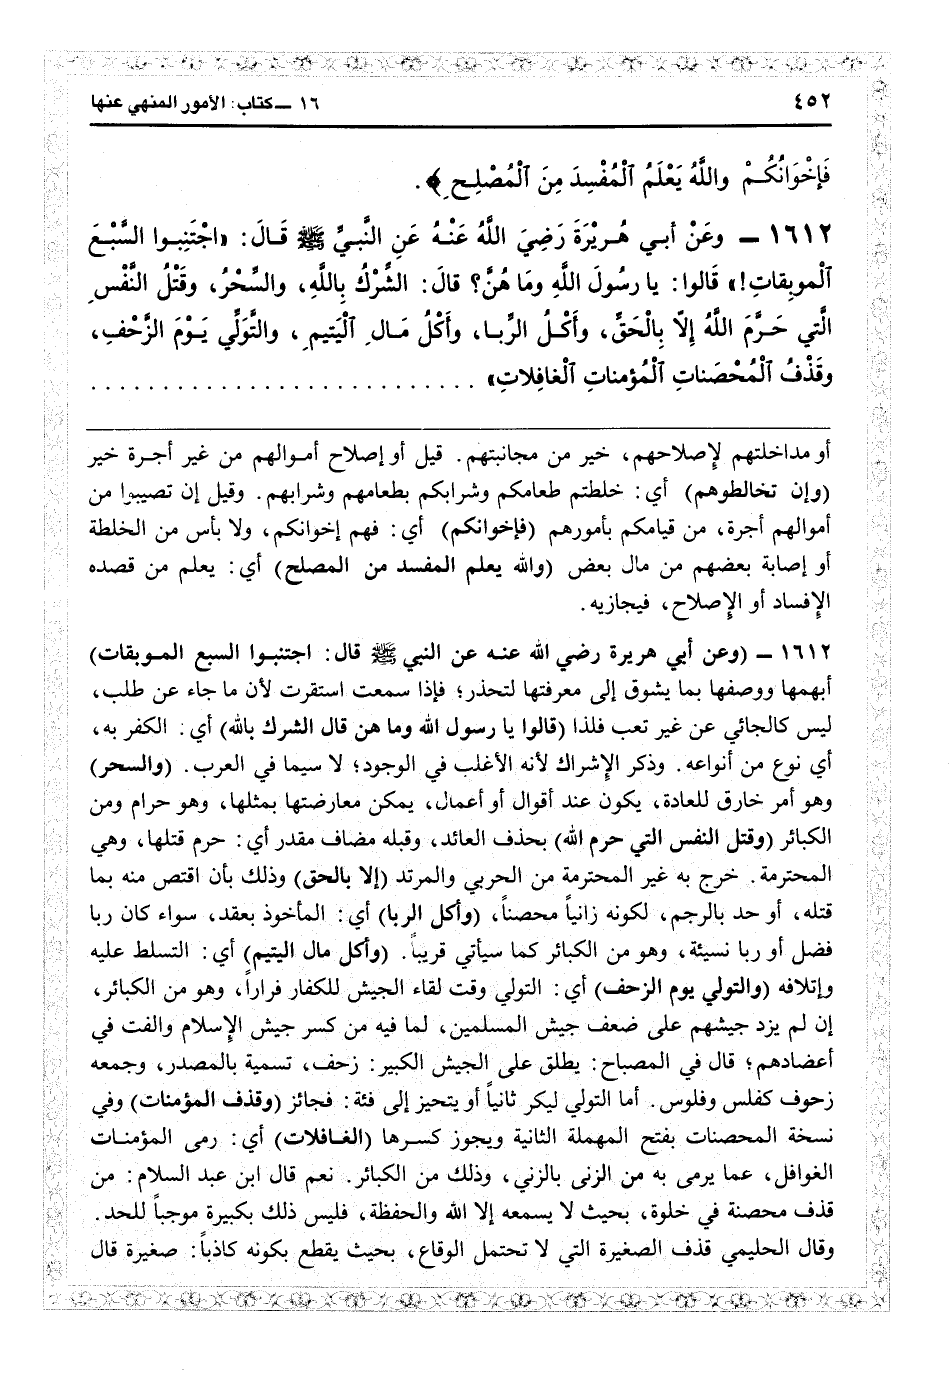 ٤٥٢
١٦ ـ كتاب: الأمور المنهي عنها
فَإِخْوَانُكُمْ واللَّهُ يَعْلَمُ ٱلْمُفْسِدَ مِنَ ٱلْمُصْلِحِ﴾.
١٦١٢ ـ وعَنْ أبي هُرَيْرَةَ رَضِيَ اللَّهُ عَنْهُ عَنِ النَّبيِّ ﷺ قَالَ: «اجْتَنِبوا السَّبْعَ
ٱلْموبِقاتِ!» قَالوا: يا رسُولَ اللَّهِ ومَا هُنَّ؟ قالَ: الشِّرْكُ بِاللَّهِ، والسِّحْرُ، وقَتْلُ النَّفْسِ
الَّتي حَرَّمَ اللَّهُ إِلاّ بِالْحَقِّ، وأَكْلُ الرِّبا، وأَكْلُ مَالِ ٱلْيَتيمِ، والتَّوَلِّي يَوْمَ الزَّحْفِ،
وقَذْفُ ٱلْمُحْصَناتِ ٱلْمُؤمِناتِ ٱلْغافِلاتِ» . . . . . . . . . . . . . . . . . . . . . . . . . . .
أو مداخلتهم لإِصلاحهم، خير من مجانبتهم. قيل أو إصلاح أموالهم من غير أجرة خير
(وإن تخالطوهم) أي: خلطتم طعامكم وشرابكم بطعامهم وشرابهم. وقيل إن تصيبوا من
أموالهم أجرة، من قيامكم بأمورهم (فإخوانكم) أي: فهم إخوانكم، ولا بأس من الخلطة
أو إصابة بعضهم من مال بعض (والله يعلم المفسد من المصلح) أي: يعلم من قصده
الإِفساد أو الإِصلاح، فيجازيه.
١٦١٢ ـ (وعن أبي هريرة رضي الله عنه عن النبي ﷺ قال: اجتنبوا السبع الموبقات)
أبهمها ووصفها بما يشوق إلى معرفتها لتحذر؛ فإذا سمعت استقرت لأن ما جاء عن طلب،
ليس كالجائي عن غير تعب فلذا (قالوا يا رسول الله وما هن قال الشرك بالله) أي: الكفر به،
أي نوع من أنواعه. وذكر الإِشراك لأنه الأغلب في الوجود؛ لا سيما في العرب. (والسحر)
وهو أمر خارق للعادة، يكون عند أقوال أو أعمال، يمكن معارضتها بمثلها، وهو حرام ومن
الكبائر (وقتل النفس التي حرم الله) بحذف العائد، وقبله مضاف مقدر أي: حرم قتلها، وهي
المحترمة. خرج به غير المحترمة من الحربي والمرتد (إلا بالحق) وذلك بأن اقتص منه بما
قتله، أو حد بالرجم، لكونه زانياً محصناً، (وأكل الربا) أي: المأخوذ بعقد، سواء كان ربا
فضل أو ربا نسيئة، وهو من الكبائر كما سيأتي قريباً. (وأكل مال اليتيم) أي: التسلط عليه
وإتلافه (والتولي يوم الزحف) أي: التولي وقت لقاء الجيش للكفار فراراً، وهو من الكبائر،
إن لم يزد جيشهم على ضعف جيش المسلمين، لما فيه من كسر جيش الإِسلام والفت في
أعضادهم؛ قال في المصباح: يطلق على الجيش الكبير: زحف، تسمية بالمصدر، وجمعه
زحوف كفلس وفلوس. أما التولي ليكر ثانياً أو يتحيز إلى فئة: فجائز (وقذف المؤمنات) وفي
نسخة المحصنات بفتح المهملة الثانية ويجوز كسرها (الغافلات) أي: رمى المؤمنات
الغوافل، عما يرمى به من الزنى بالزني، وذلك من الكبائر. نعم قال ابن عبد السلام: من
قذف محصنة في خلوة، بحيث لا يسمعه إلا الله والحفظة، فليس ذلك بكبيرة موجباً للحد.
وقال الحليمي قذف الصغيرة التي لا تحتمل الوقاع، بحيث يقطع بكونه كاذباً: صغيرة قال